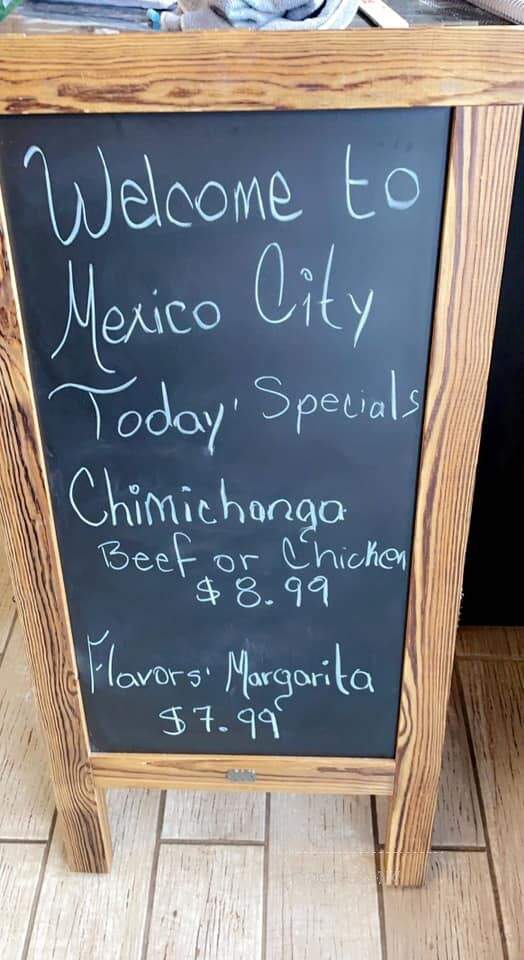 Welcome to
Mexico City
Today' Specials
Chimichanga
Beef or Chicken
$8.99
Flavors' Margarita
$7.99